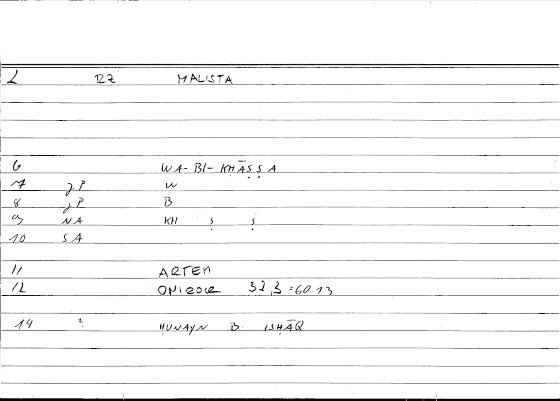 L 127 MALISTA
6 WA-BI-KHĀṢṢA
7 JP W
8 JP B
9 NA KH ṣ ṣ
10 SA
11 ARTEM
12 32,3 = 60.13
14 ? ḤUNAYN B. ISḤĀQ